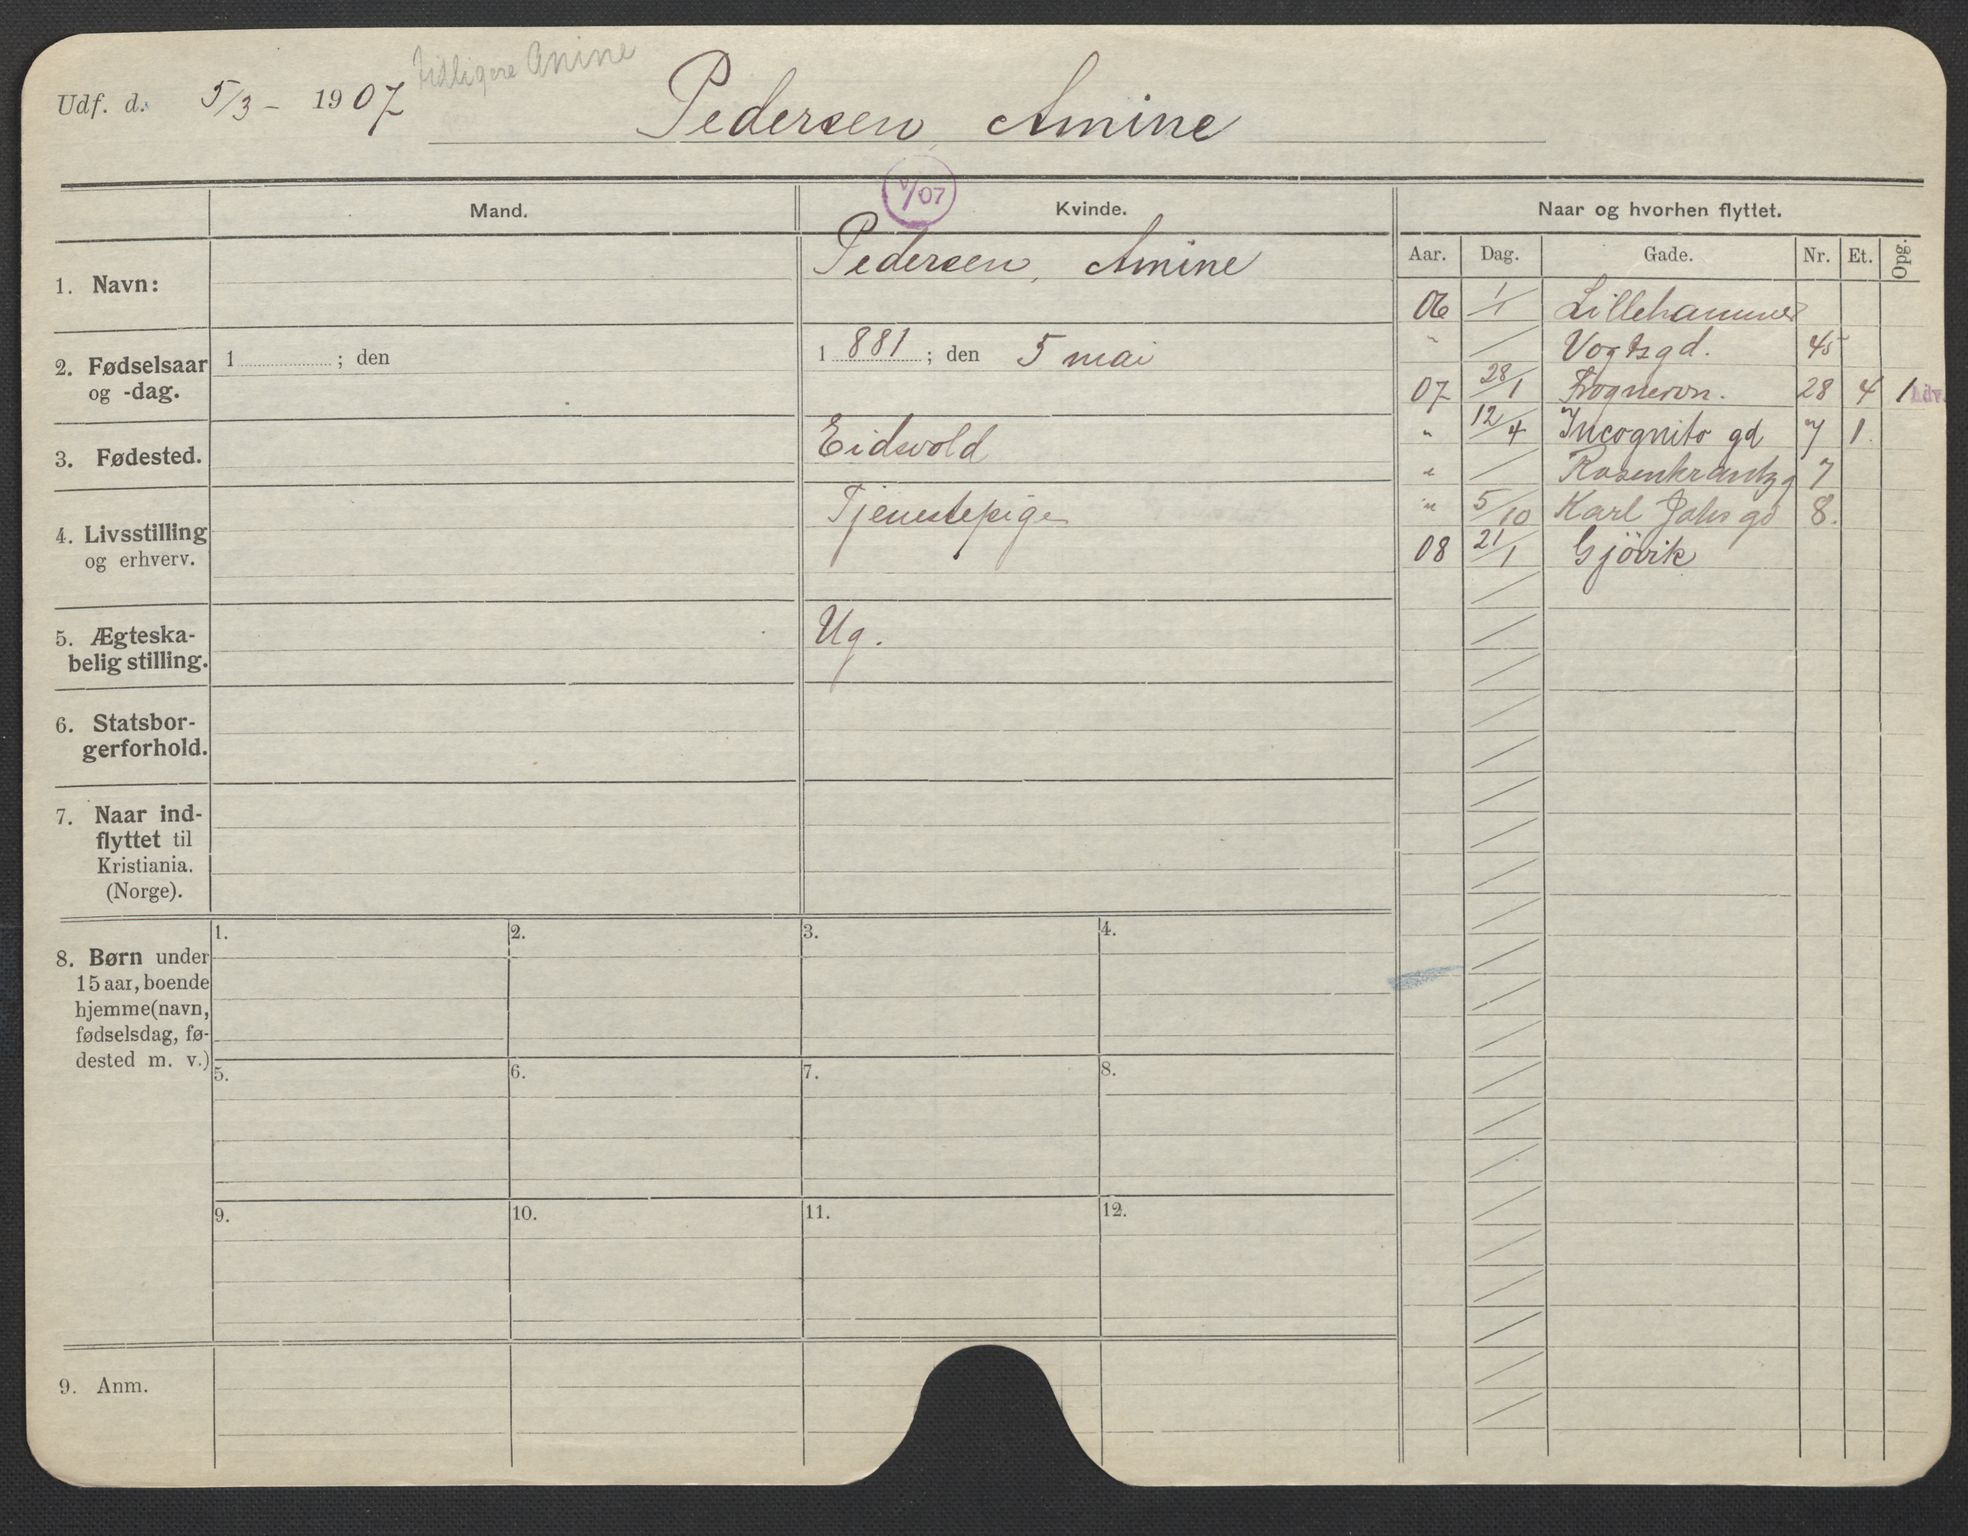 tidligere Anine
Udf. d. 5/3 - 1907
Pedersen, Amine
V/07
Mand.
Kvinde.
Naar og hvorhen flyttet.
Aar. Dag. Gade. Nr. Et. Opg.
1. Navn:
Pedersen, Amine
2. Fødselsaar
og -dag.
1 ; den
1 881 ; den 5 mai
3. Fødested.
Eidsvold
4. Livsstilling
og erhverv.
Tjenestepige
5. Ægteska-
belig stilling.
Ug.
6. Statsbor-
gerforhold.
7. Naar ind-
flyttet til
Kristiania.
(Norge).
06 1/1 Lillehammer
" / Vogtsgd. 45
07 28/1 Frognervn. 28 4 1
" 12/4 Incognito gd 7 1.
" / Rosenkrantzg 7
" 5/10 Karl Johs gd 8.
08 21/1 Gjövik
8. Børn under
15 aar, boende
hjemme (navn,
fødselsdag, fø-
dested m. v.)
1. 2. 3. 4.
5. 6. 7. 8.
9. 10. 11. 12.
9. Anm.